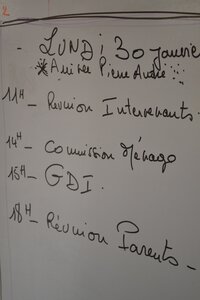 2
- LUNDi 30 janvier
* Arrivée Pierre André
11H - Réunion Intervenants.
14H - Commission Ménage
15H - GDI.
18H - Réunion Parents -